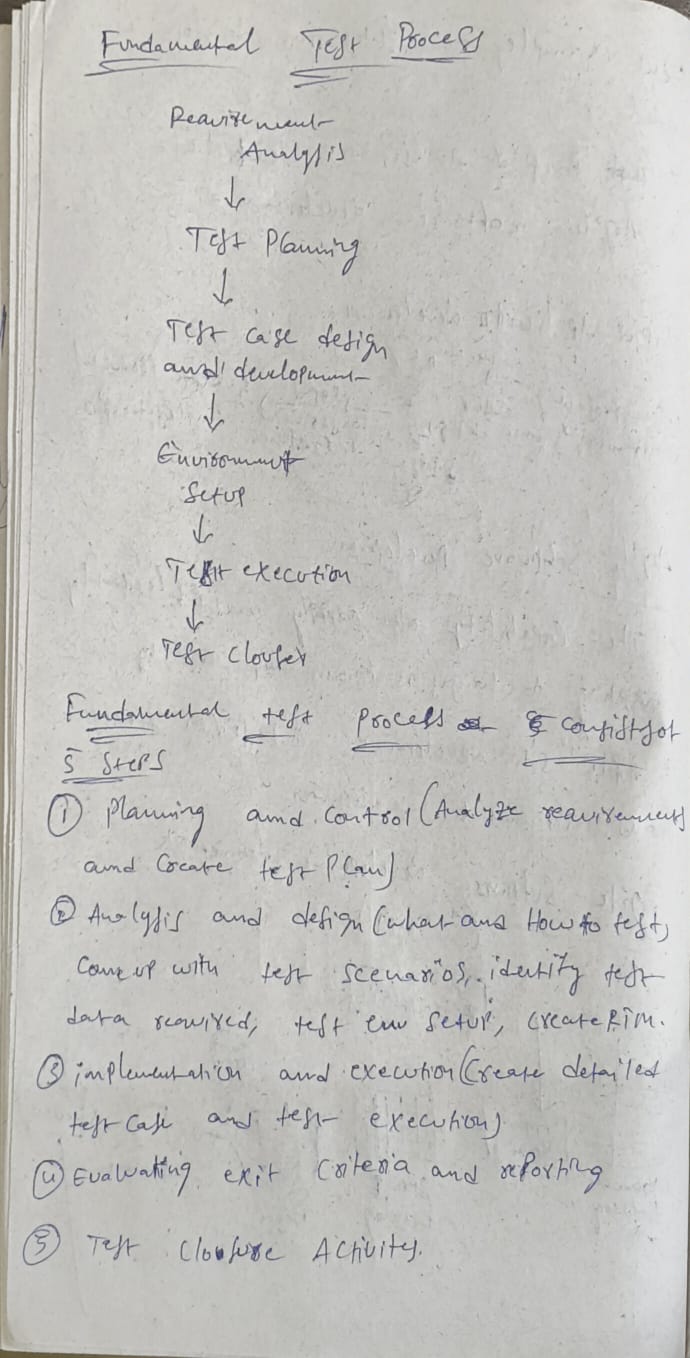 Fundamental Test Process
Reauirement
Analysis
↓
Test Planning
↓
Test case design
and development
↓
Environment
Setup
↓
Test execution
↓
Test Clouser
Fundamental test process consistsof
5 Steps
① Planning and control (Analyze reauirements
and Create test Plan)
② Analysis and design (what and How to test,
Come up with test scenarios, identify test
data reauired, test env setup, create RTM.
③ implementation and execution (Create detailed
test case and test execution)
④ Evaluating exit Criteria and reporting
⑤ Test Closure Activities.